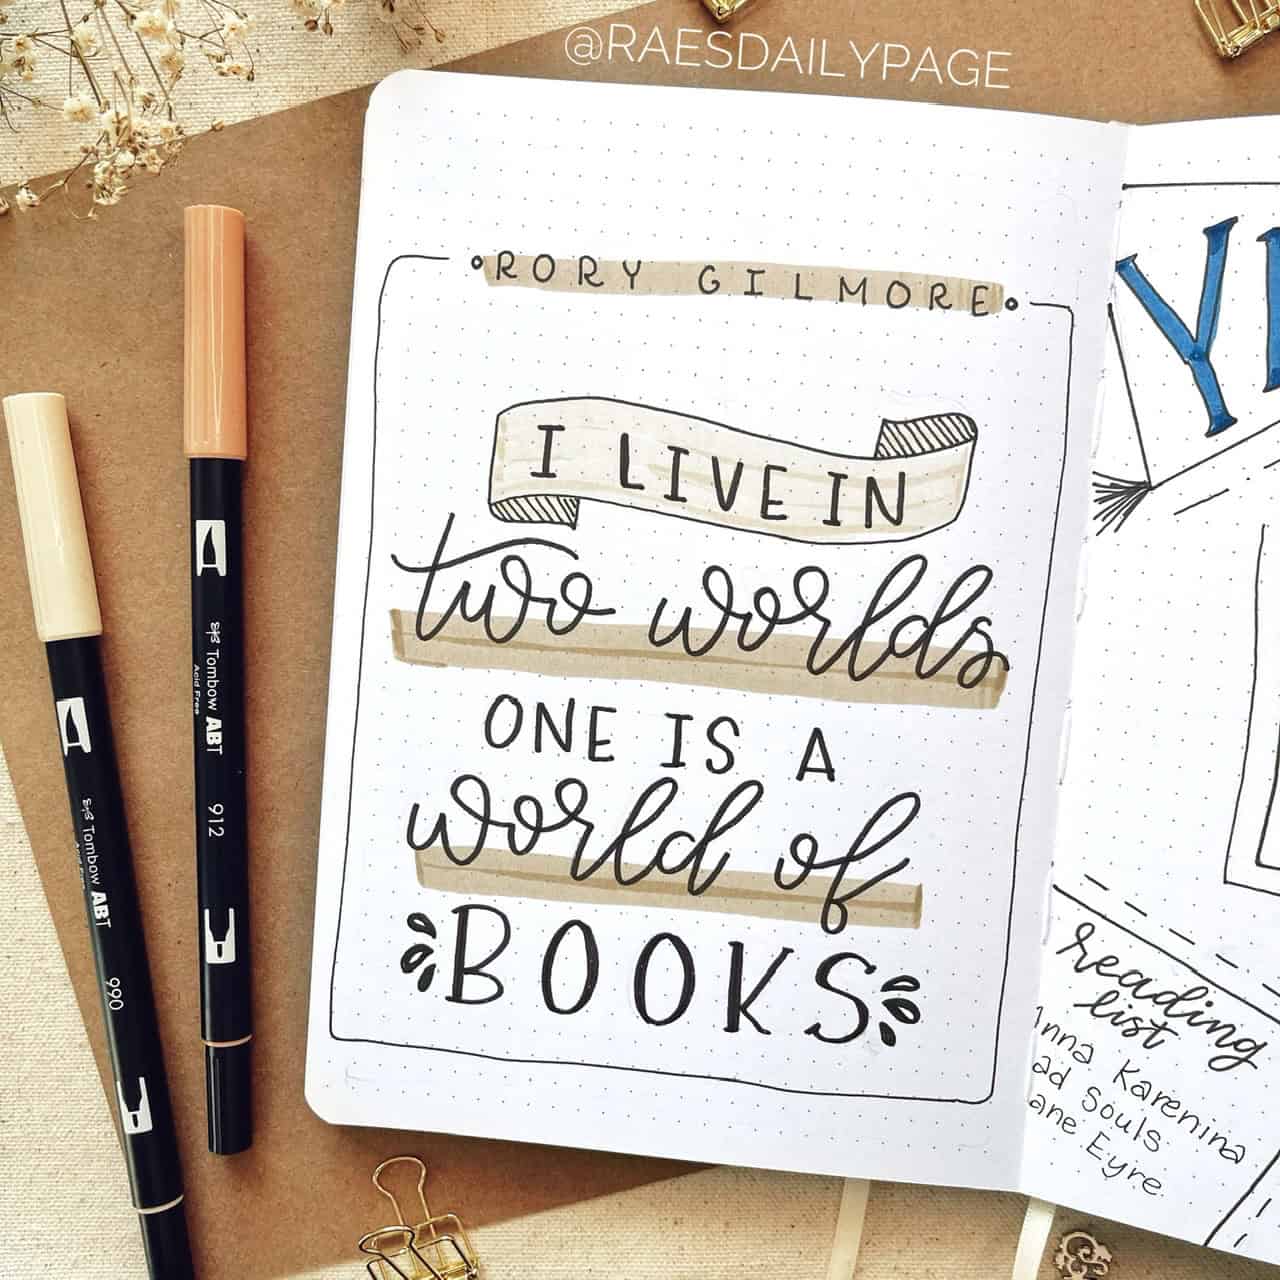 @RAESDAILYPAGE
RORY GILMORE
I LIVE IN
two worlds
ONE IS A
world of
BOOKS
Tombow ABT
Acid Free
912
Tombow ABT
990
Y
reading
list
Anna Karenina
ad Souls
ane Eyre